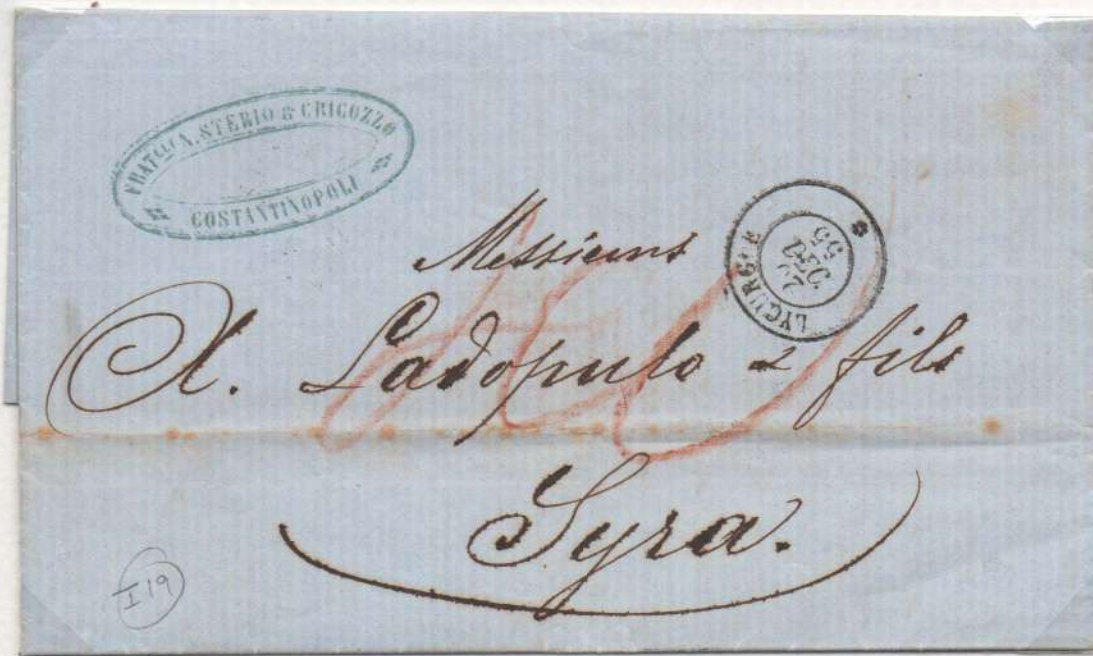 FRATELLI N. STERIO & CRICOZZO
COSTANTINOPOLI
LYCURGUE
DEC
55
Messieurs
X. Ladopulo & fils
Syra.
I 19